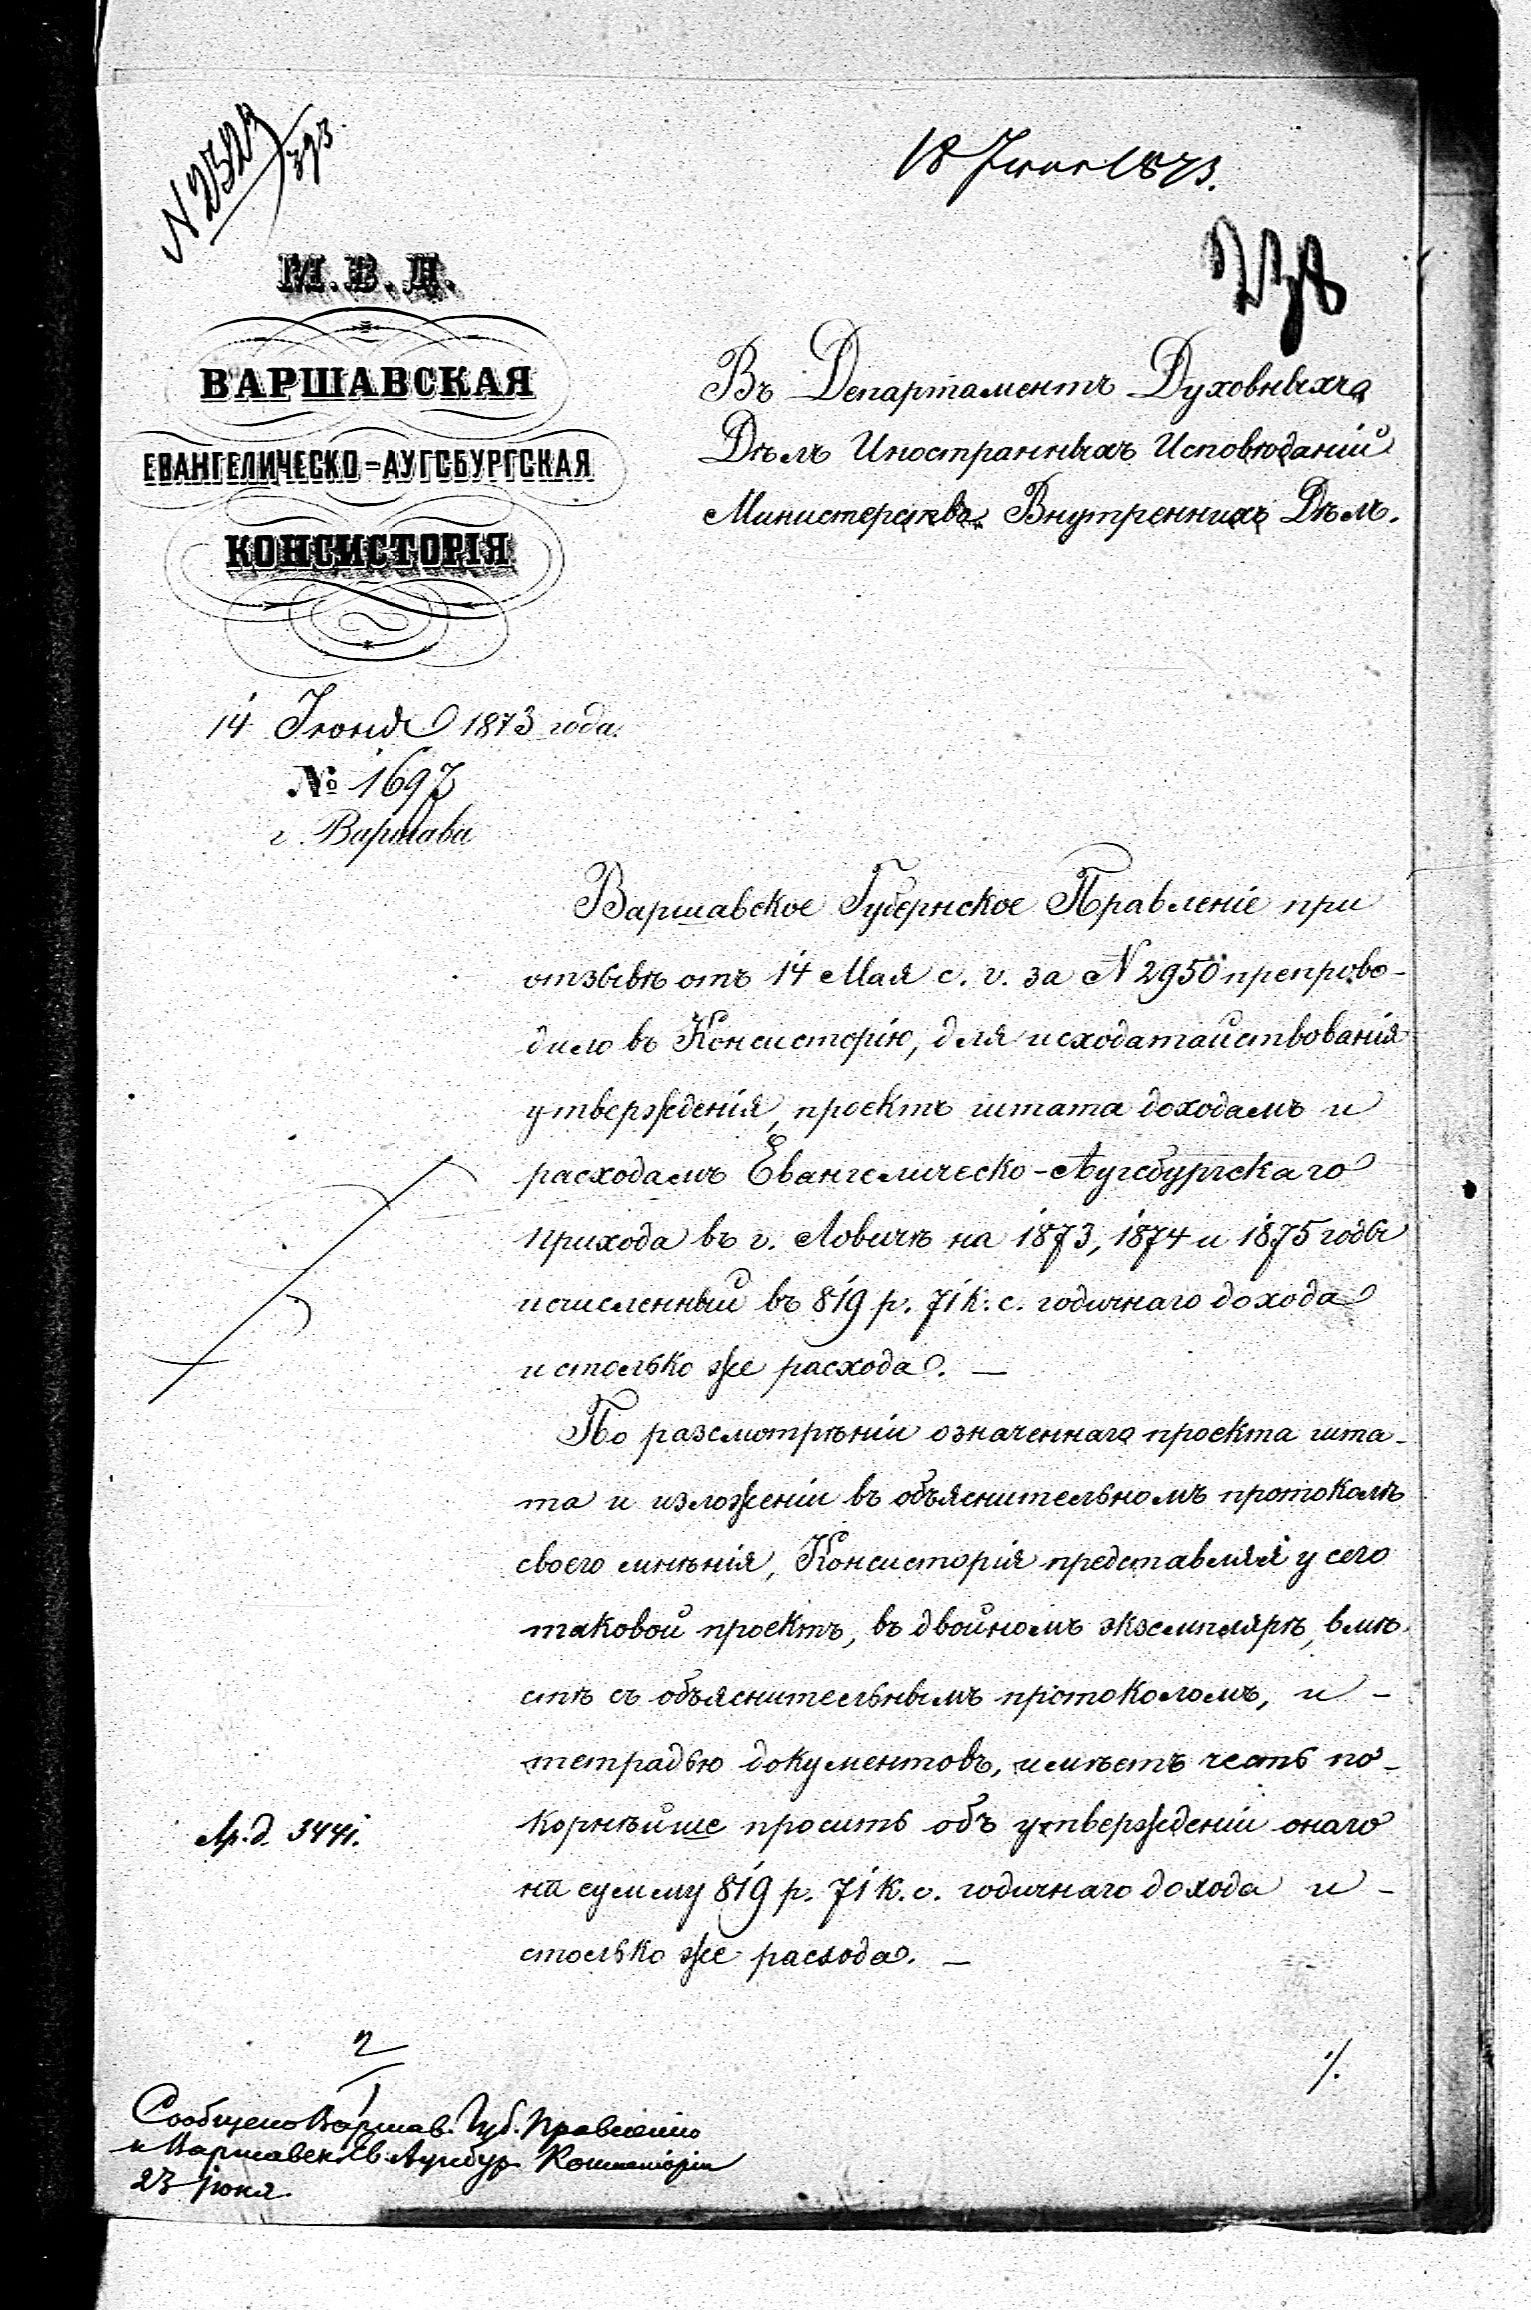 18 Іюня 1873.
М. В. Д.
ВАРШАВСКАЯ
ЕВАНГЕЛИЧЕСКО-АУГСБУРГСКАЯ
КОНСИСТОРІЯ
14 Іюня 1873 года.
№ 1697
г. Варшава
Въ Департаментъ Духовныхъ
Дѣлъ Иностранныхъ Исповѣданій
Министерства Внутреннихъ Дѣлъ.
Варшавское Губернское Правленіе при
отзывѣ отъ 14 Мая с. г. за N 2950 препрово-
дило въ Консисторію, для исходатайствованія
утвержденія, проектъ штата доходамъ и
расходамъ Евангелическо-Аугсбургскаго
прихода въ г. Ловичѣ на 1873, 1874 и 1875 годы
исчисленный въ 819 р. 71 к. с. годичнаго дохода
и столько же расхода. —
По разсмотрѣніи означеннаго проекта шта-
та и изложеніи въ объяснительномъ протоколѣ
своего мнѣнія, Консисторія представляя у сего
таковой проектъ, въ двойномъ экземплярѣ, вмѣ-
стѣ съ объяснительнымъ протоколомъ, и -
тетрадью документовъ, имѣетъ честь по-
корнѣйше просить объ утвержденіи онаго
на сумму 819 р. 71 к. с. годичнаго дохода и -
столько же расхода. —
./.
Сообщено Варшав. Губ. Правленію
и Варшавск. Ев. Аугсбур. Консисторіи
23 іюня.